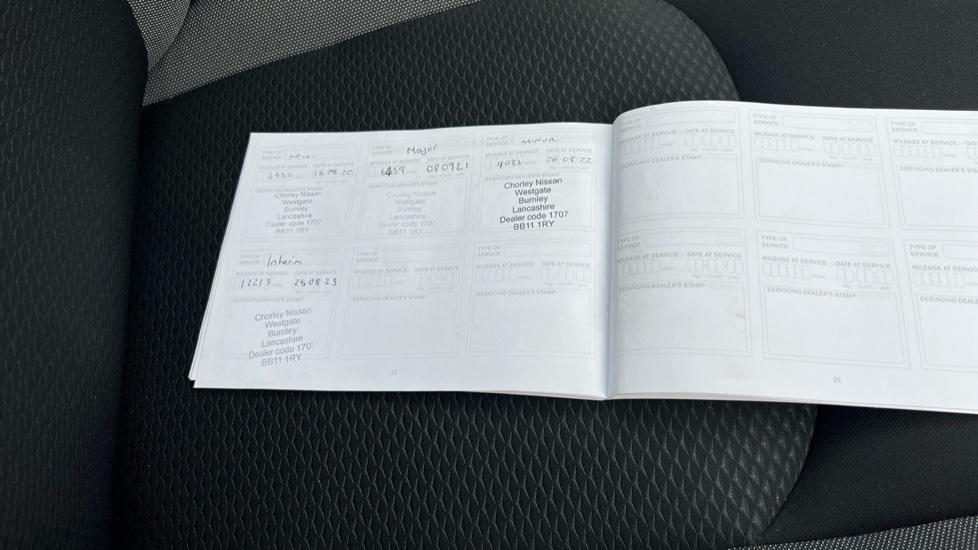 TYPE OF
SERVICE
MILEAGE AT SERVICE DATE AT SERVICE
18 08 20
SERVICING DEALER'S STAMP
Chorley Nissan
Westgate
Burnley
Lancashire
Dealer code 1707
BB11 1RY
TYPE OF
SERVICE Major
MILEAGE AT SERVICE DATE AT SERVICE
6459 080921
SERVICING DEALER'S STAMP
Chorley Nissan
Westgate
Burnley
Lancashire
Dealer code 1707
BB11 1RY
TYPE OF
SERVICE MINOR
MILEAGE AT SERVICE DATE AT SERVICE
9033 26 08 22
SERVICING DEALER'S STAMP
Chorley Nissan
Westgate
Burnley
Lancashire
Dealer code 1707
BB11 1RY
TYPE OF
SERVICE Interim
MILEAGE AT SERVICE DATE AT SERVICE
12213 250823
SERVICING DEALER'S STAMP
Chorley Nissan
Westgate
Burnley
Lancashire
Dealer code 170
BB11 1RY
TYPE OF
SERVICE
MILEAGE AT SERVICE DATE AT SERVICE
SERVICING DEALER'S STAMP
TYPE OF
SERVICE
MILEAGE AT SERVICE DATE AT SERVICE
SERVICING DEALER'S STAMP
TYPE OF
SERVICE
MILEAGE AT SERVICE DATE AT SERVICE
SERVICING DEALER'S STAMP
TYPE OF
SERVICE
MILEAGE AT SERVICE DATE AT SERVICE
SERVICING DEALER'S STAMP
TYPE OF
SERVICE
MILEAGE AT SERVICE
SERVICING DEALER'S STA
TYPE OF
SERVICE
MILEAGE AT SERVICE DATE AT SERVICE
SERVICING DEALER'S STAMP
TYPE OF
SERVICE
MILEAGE AT SERVICE DATE AT SERVICE
SERVICING DEALER'S STAMP
TYPE OF
SERVICE
MILEAGE AT SERVICE
SERVICING DEALE
23